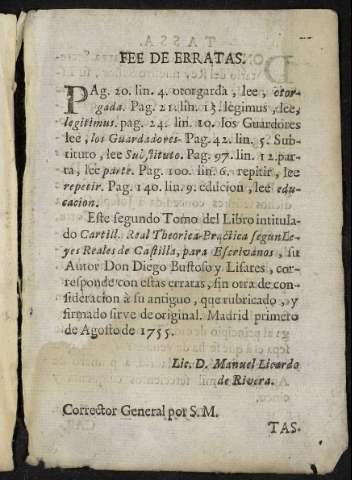 FEE DE ERRATAS.
PAg. 20. lin. 4. otorgarda, lee, otor-
gada. Pag. 21. lin. 13. legimus, lee,
legitimus. pag. 24. lin. 10. los Guardores
lee, los Guardadores. Pag. 42. lin. 5. Sub-
tituto, lee Substituto. Pag. 97. lin. 12. par-
ta, lee parte. Pag. 100. lin. 6. repitir, lee
repetir. Pag. 140. lin. 9. edicion, lee edu-
cacion.
Este segundo Tomo del Libro intitula-
do Cartill. Real Theorica-Practica segun Le-
yes Reales de Castilla, para Escrivanos, su
Autor Don Diego Bustoso y Lisares, cor-
responde con estas erratas, sin otra de con-
sideracion à su antiguo, que rubricado, y
firmado sirve de original. Madrid primero
de Agosto de 1755.
Lic. D. Manuel Licardo
de Rivera.
Corrector General por S. M.
TAS-